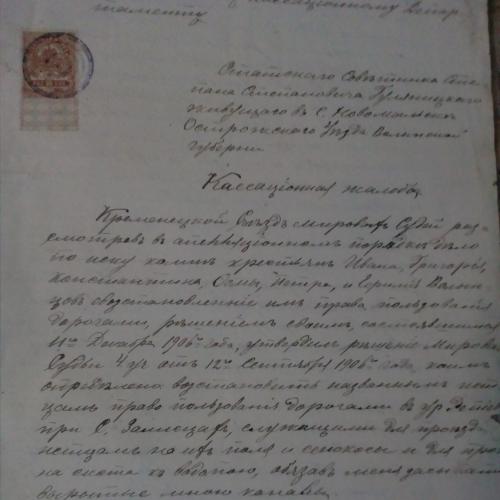 Кассационному Депар
таменту
Статского Совѣтника Сте
пана Степановича Гуляницкаго
живущаго в с. Новомалинск
Острожскаго уѣзда Волынской
Губернии
Кассаціонная жалоба
Кременецкой Съездъ мировыхъ Судей раз
смотрев в апеляціонном порядкѣ дѣло
по иску ко мнѣ крестьян Ивана, Григорія
Константина, Сомы, Петра, и
о возстановленіе им права пользованія
дорогами, рѣшеніем своим, состоявшимся
11го Декабря 1906 года, утвердил рѣшеніе Мироваго
Судьи 4 уч от 12го Сентября 1906 года, коим
опредѣлено возстановить названным ист
цамъ право пользованія дорогами в ур.
при С. служащими для проезда
истцам на их поля и сенокосы и для про
на скота к водопою, обязав меня засыпать
вырытые мною канавы